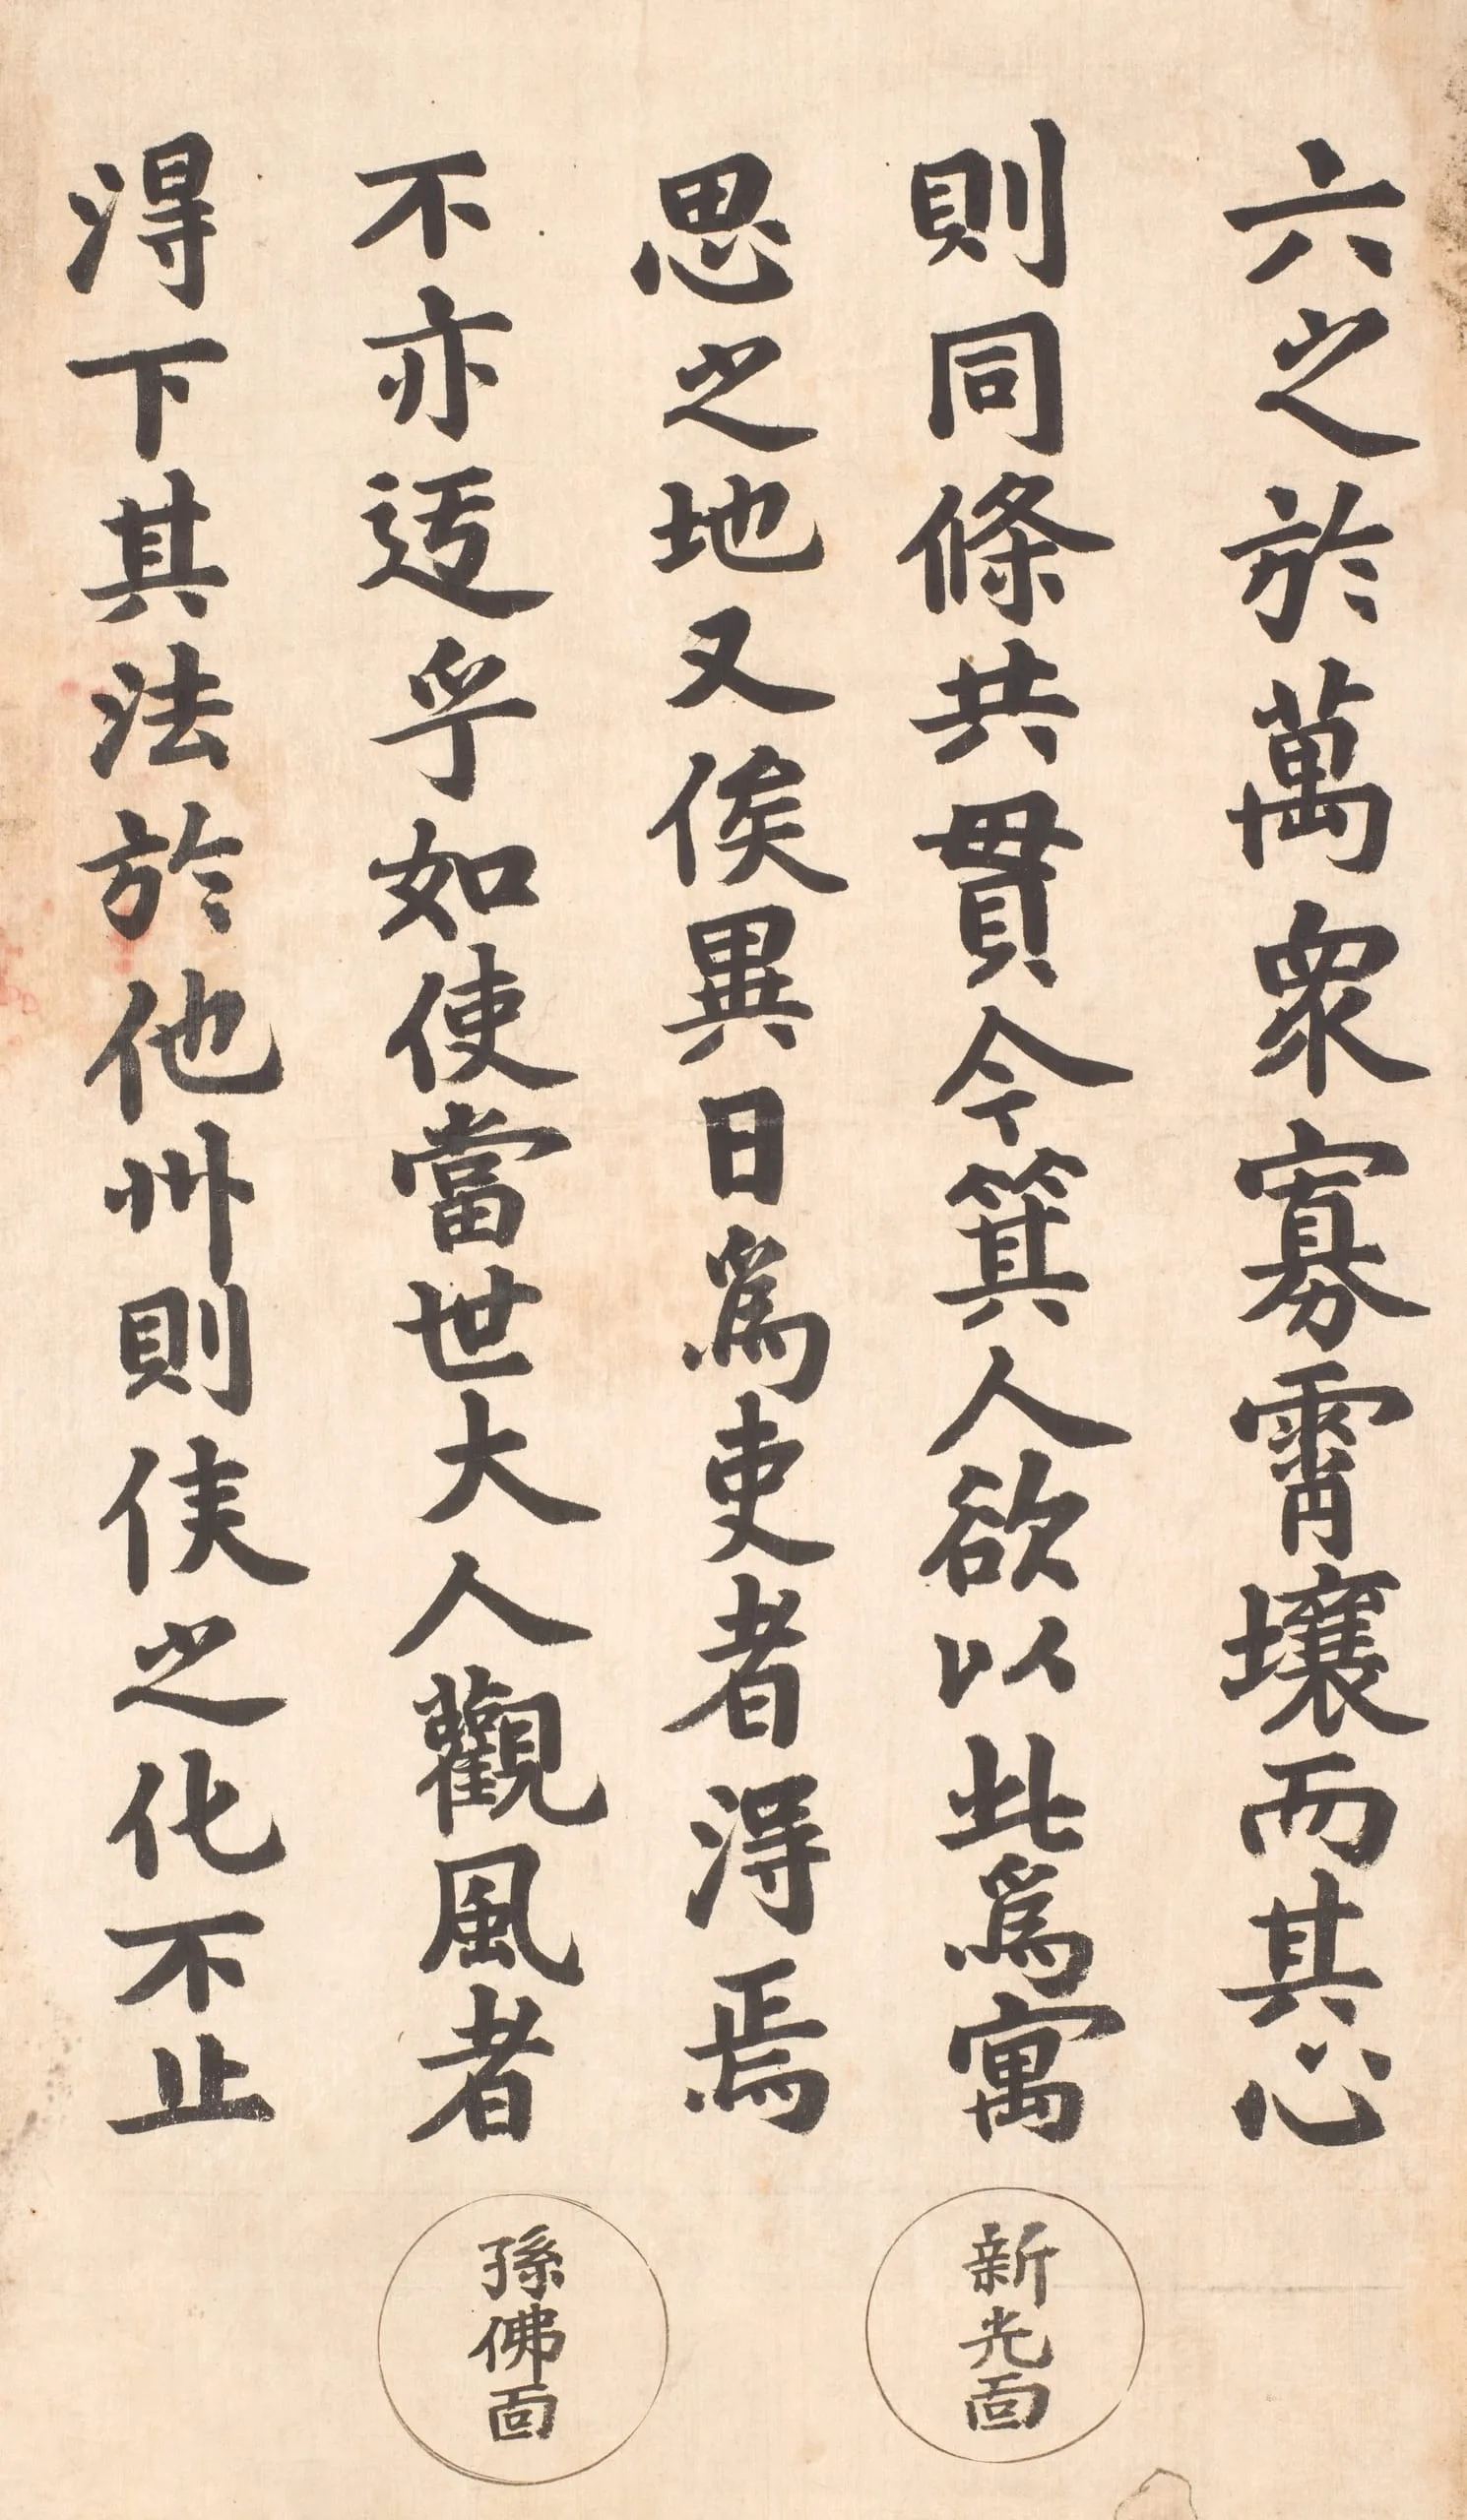 六之於萬衆寡霄壤而其心
則同條共貫今箕人欲以此爲寓
思之地又俟異日爲吏者得焉
不亦迃乎如使當世大人觀風者
得下其法於他州則侯之化不止
新光面
孫佛面